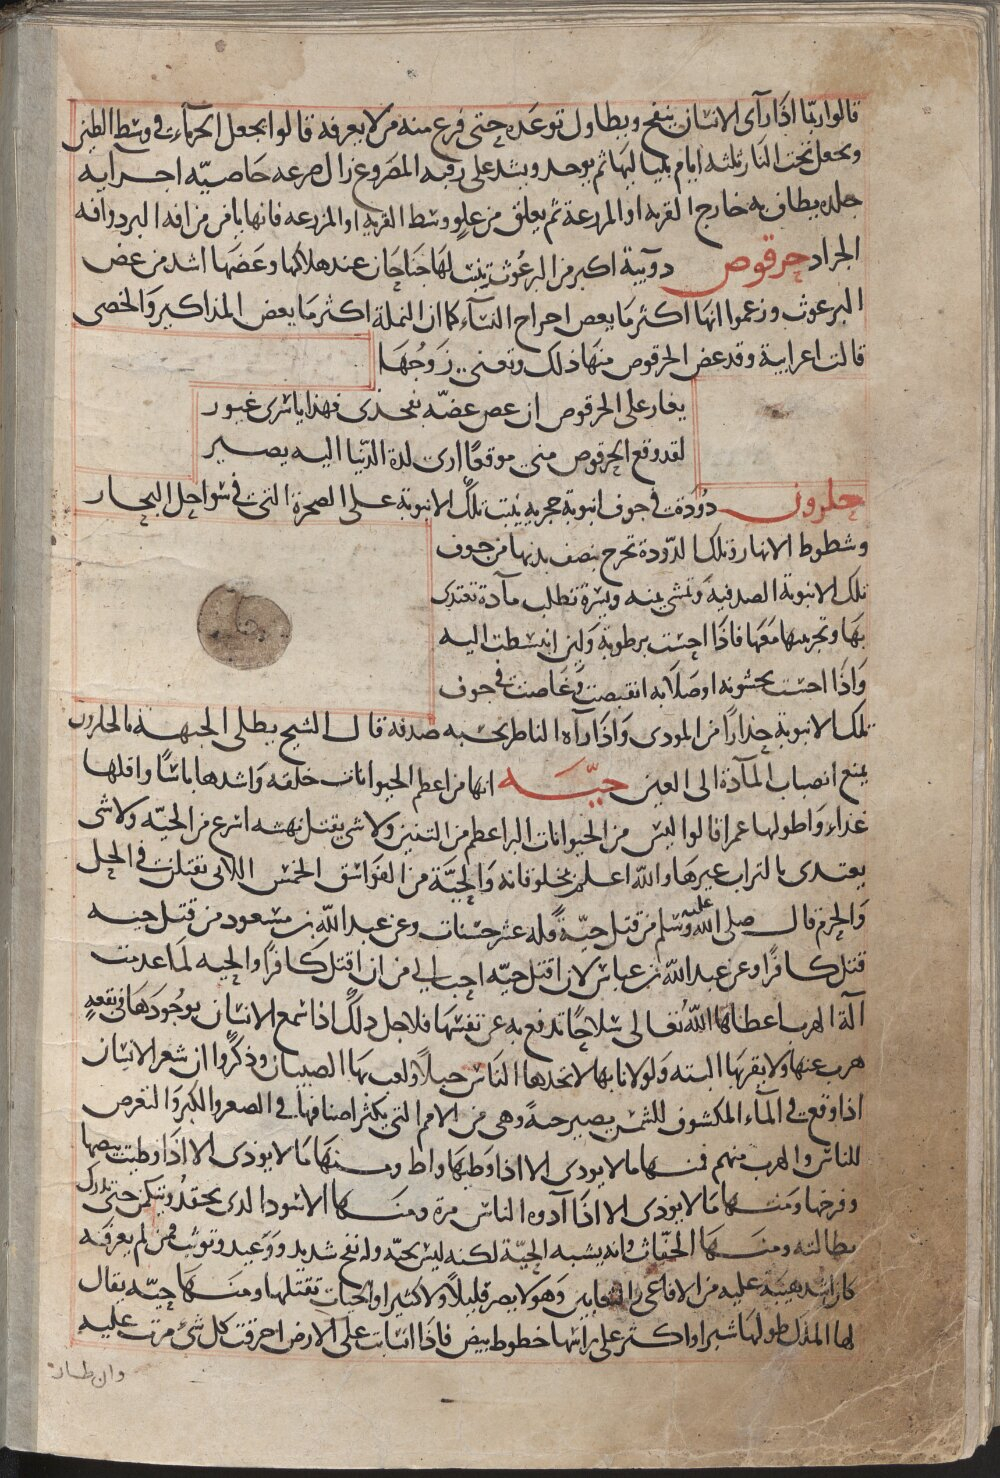 قالوا ربما اذا رأى الانسان ينفخ ويطاول توعده حتى فزع منه من لا يعرفه قالوا يجعل الحرباءة في وسط الطين
ويجعل تحت النار ثلثه ايام بلياليها ثم يوخذ ويشد على رقبه المصروع زال صرعه خاصيه اجزايه
جلده يطاف به خارج القريه او المزرعة ثم يعلق من علو وسط القريه او المزرعه فانها يامن من افه البرد وافه
الجراد حرقوص دويبة اكبر من البرغوث ينبت لها جناحان عند هلاكها وعضها اشد من عض
البرغوث وزعموا انها اكثر ما يعض احراح النسآء كما ان النملة اكثر ما يعض المذاكير والخصى
قالت اعرابية وقد عض الحرقوص منها ذلك وتغنى زوجها
يغار على الحرقوص ان عض عضه بفخذى فهذا ياشرى غيور
لقد وقع الحرقوص منى موقعا ارى لذة الدنيا اليه يصير
حلزون دودة في جوف انبوبة حجرية ينبت تلك الانبوبة على الصخرة التي في سواحل البحار
وشطوط الانهار وتلك الدودة تخرج بنصف بدنها من جوف
تلك الانبوبة الصدفية وتمشى يمنه ويسرة تطلب مآدة تغتذى
بها وتجرسها معها فاذا احست برطوبة ولين انبسطت اليه
واذا احست بخشونه او صلابه انقبضت وغاصت في جوف
تلك الانبوبة حذارا من الموذى واذا رآه الناظر يحسبه صدفه قال الشيخ يطلى الجبهة بالحلزون
يمنع انصباب المآدة الى العين حيّه انها من اعظم الحيوانات خلقه واشدها باسا واقلها
غذاء واطولها عمرا قالوا ليس من الحيوانات البر اعظم من التنين ولا شى يقتل نهشه اسرع من الحيّه ولا شى
يغتذى بالتراب غيرها والله اعلم بمخلوقاته والحيّة من الفواسق الخمس اللاتى تقتلن في الحل
والحرم قال صلى الله عليه وسلم من قتل حيّة فله عشر حسنات وعن عبد الله بن مسعود من قتل حيه
قتل كافرا وعن عبد الله بن عباس لان اقتل حيّه احب الي من ان اقتل كافرا والحيه لما عدمت
آلة الهرب اعطاها الله تعالى سلاحا تدفع به عن نفسها فلاجل ذلك اذا سمع الانسان بوجودها في بقعه
هرب عنها ولا يقربها البته ولولا نابها لاتخذها الناس حبلا ولعب بها الصبيان وذكروا ان شعر الانسان
اذا وقع في المآء المكشوف للشمس يصير حية وهى من الامم التى يكثر اصنافها في الصغر والكبر والتعرض
للناس والهرب منهم فمنها ما لا يوذى الا اذا وطيها واطى ومنها ما لا يوذى الا اذا وطيت بيضها
وفرخها ومنها ما لا يوذى الا اذا آذوه الناس مرة ومنها الاسود الذى يحقد ويكمن حتى تدارك
بطالبته ومنها الحفاث وانه يشبه الحيّة لكنه ليس بحيّه وله نفخ شديد ووعيد وتوثب فمن لم يعرفه
كان اشد هيبة عليه من الافاعى والثعابين وهو لا يضر قليلا ولا كثيرا والحيات تقتلها ومنها حيّه يقال
لها الملك طولها شبر او اكثر على راسها خطوط بيض فاذا انسابت على الارض احرقت كل شى مرت عليه
وان طار